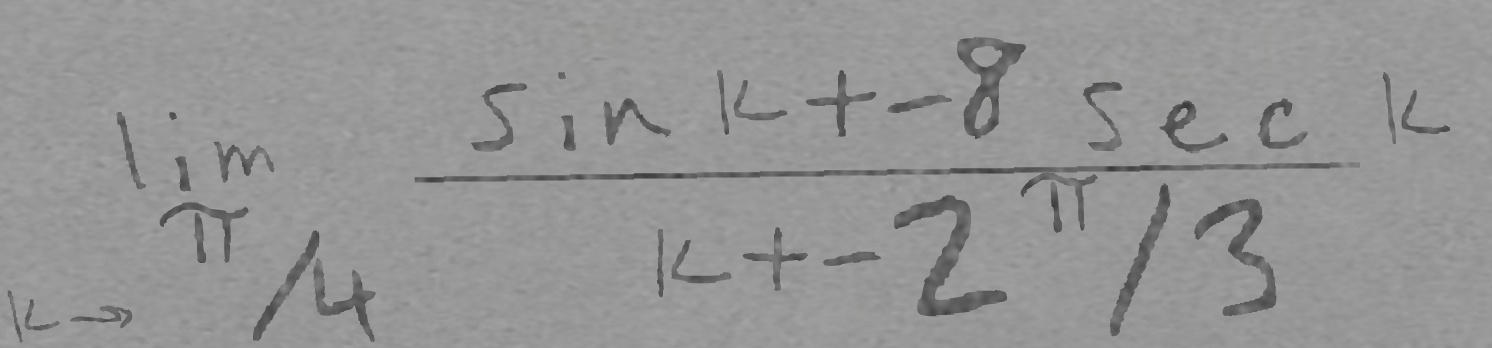 lim k→π/4 \frac{sin k+-8 sec k}{k+-2π/3}